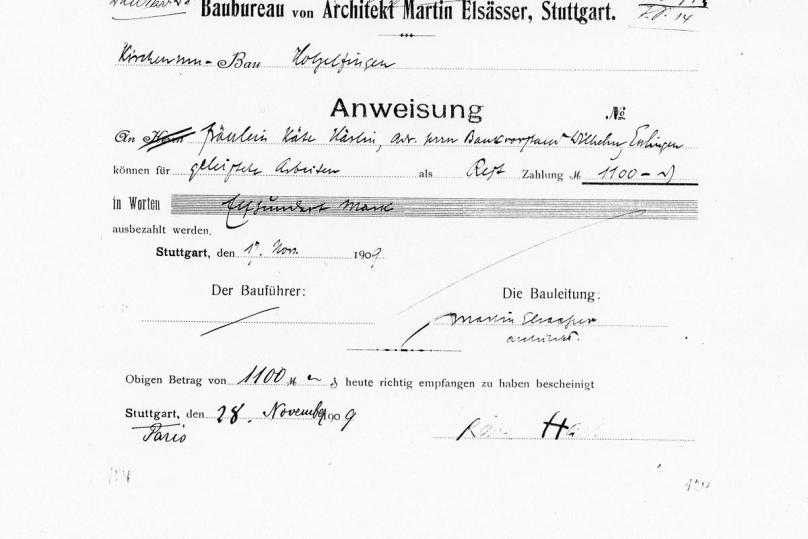 Baubureau von Architekt Martin Elsässer, Stuttgart.
Bau Holzelfingen
Anweisung No
An Herrn Fräulein Käte Härlin, Adr. Herrn Bankvorstand Wilhelm, Esslingen
können für geleistete Arbeiten als Rest Zahlung M 1100 -
in Worten Elfhundert Mark
ausbezahlt werden.
Stuttgart, den 17. Nov. 1909
Der Bauführer: Die Bauleitung:
Martin Elsaesser
Architekt.
Obigen Betrag von 1100 M heute richtig empfangen zu haben bescheinigt
Stuttgart, den 28. November 1909
Paris